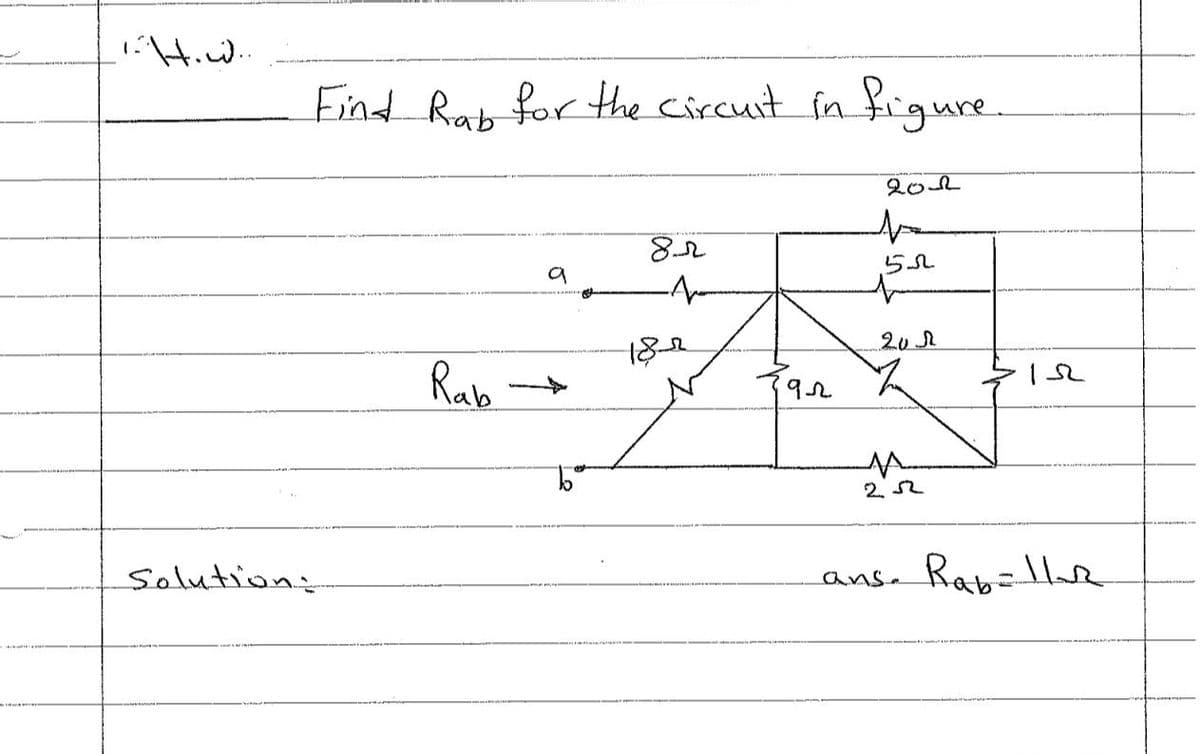 1- H.W..
Find Rab for the circuit in figure.
20Ω
8Ω
5Ω
a
18Ω
20Ω
Rab →
9Ω
1Ω
b
2Ω
Solution:
ans. Rab = 11Ω